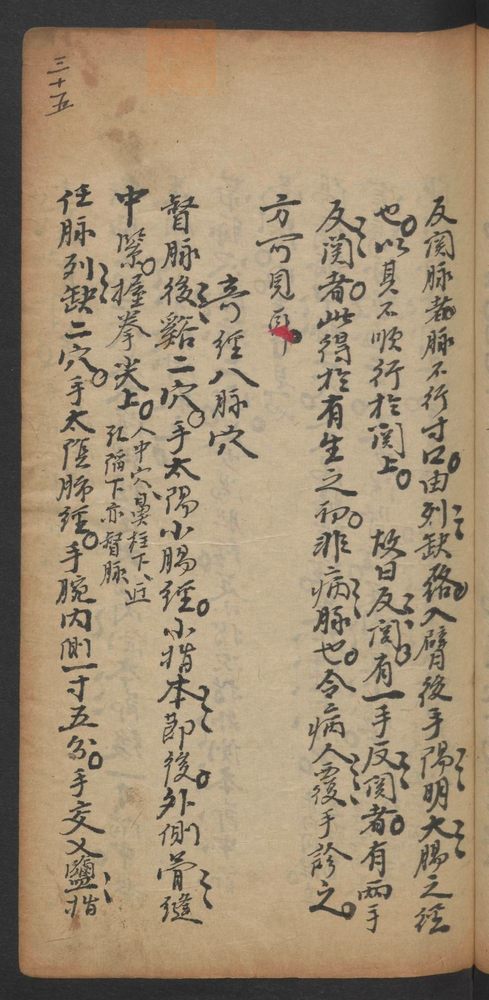 三十五
反関脉者脉不行寸口由列缺絡入臂後手陽明大腸之経
也以其不順行於関上故曰反関有一手反関者有両手
反関者此得於有生之初非病脉也令病人覆手診之
方可見耳
奇經八脉穴
督脉後谿二穴手太陽小腸經小指本節後外側骨縫
中緊握拳尖上人中穴鼻柱下近
孔陥下亦督脉
任脉列缺二穴手太陰肺經手腕内側一寸五分手交叉鹽指